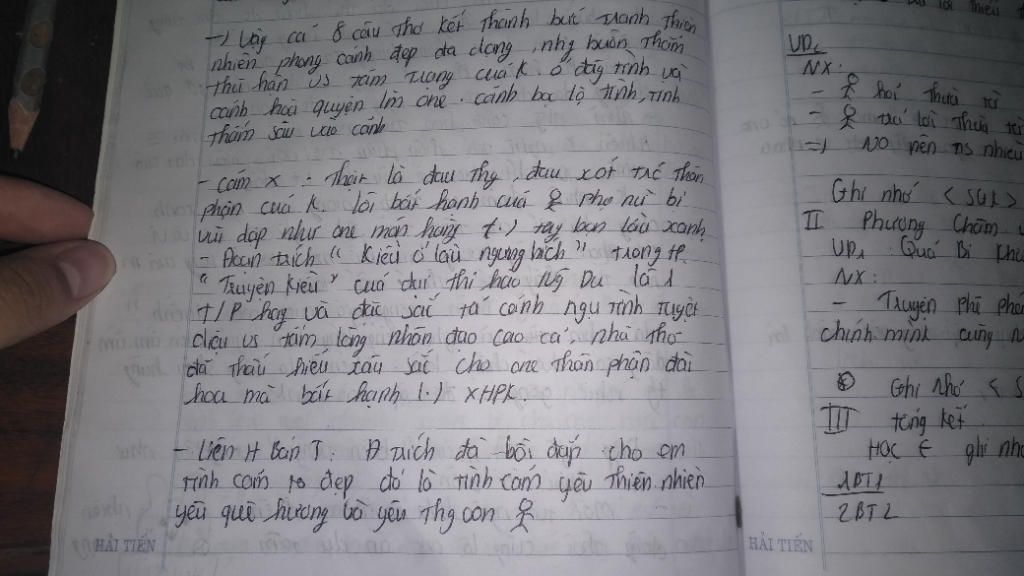 -) Vậy cả 8 câu thơ kết thành bức tranh thiên
nhiên phong cảnh đẹp đa dạng, nhg buồn thảm
thù hận vs tâm trạng của K. ở đây tình và
cảnh hoà quyện lm one. cảnh bộc lộ tình, tình
thấm sâu vào cảnh
- cảm x : Thật là đau thg, đau xót trc thân
phận của K. Lời bất hạnh của phụ nữ bị
vùi dập như one món hàng (.) tay bọn lầu xanh
- Đoạn trích " Kiều ở lầu ngưng bích " trong tp.
" Truyện Kiều " của đại thi hào Ng Du là 1
T/P hay và đặc sắc tả cảnh ngụ tình tuyệt
diệu vs tấm lòng nhân đạo cao cả, nhà thơ
đã thấu hiểu sâu sắc cho one thân phận đài
hoa mà bất hạnh (.) XHPK
- Liên H Bản T : Đ trích đã bồi đắp cho em
tình cảm to đẹp đó là tình cảm yêu thiên nhiên
yêu quê hương và yêu thg con
HẢI TIẾN
VD1
NX:
- hỏi thừa từ
- trả lời thừa từ
=) NO nên ns nhiều
Ghi nhớ < SGK >
II Phương Châm
VD1 Quả Bí
NX:
- Truyện phê phán
chính mình cũng
Ghi nhớ < S
III tổng kết
HỌC ghi nhớ
1BT1
2BT2
HẢI TIẾN